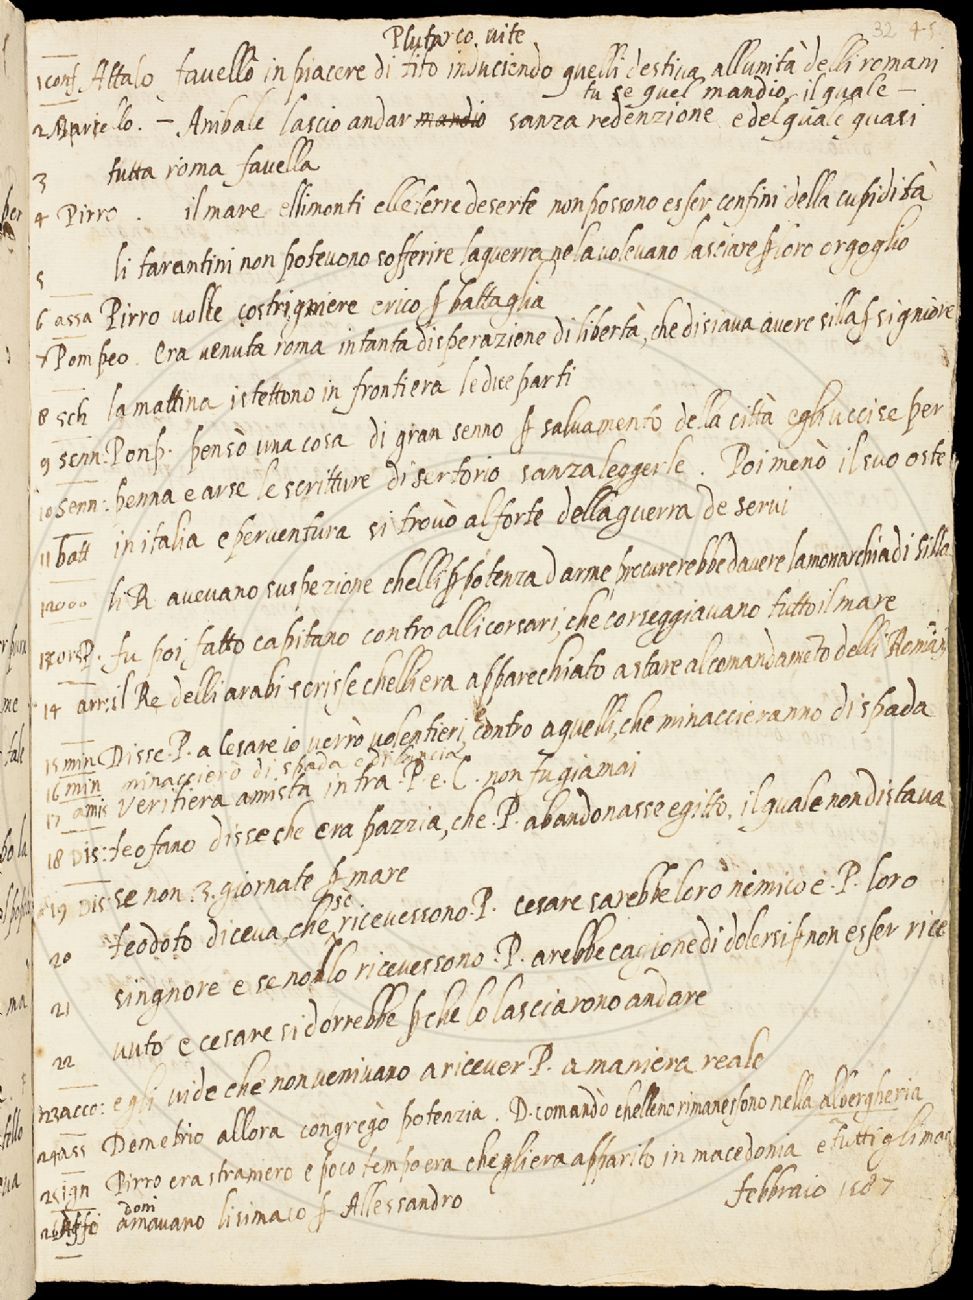 Plutarco. vite
32 45
1 conf Attalo favellò in piacere di tito inducendo quelli destiva allunità delli romani
tu se quel mandio, il quale –
2 Marsello. – Anibale lascio andar mandio sanza redenzione e del quale quasi
3 tutta roma favella
4 Pirro . il mare ellimonti elle terre deserte non possono esser confini della cupidità
5 li tarantini non potevono sofferire la guerra ne la volevano lasciare ꝑ loro orgoglio
6 assa Pirro volle costrigniere erico ꝑ battaglia
7 Pompeo. era venuta roma in tanta disperazione di libertà, che disiava avere silla ꝑ signiore
8 sch la mattina istettono in frontiera le due parti
9 senn: Ponp. pensò una cosa di gran senno ꝑ salvamento della città egli uccise per
10 senn: penna e arse le scritture di sertorio sanza leggerle. Poi menò il suo oste
11 batt in italia e per ventura si trovò al forte della guerra de servi
12 li R avevano suspezione chelli ꝑ potenza darme procurerebbe davere la monarchia di silla
13 ors P. fu poi fatto capitano contro alli corsari, che corseggiavano tutto il mare
14 arr: il Re delli arabi scrisse chelli era apparechiato a stare al comandamēto delli Romāj
15 min Disse. P. a Cesare io verrò volentieri contro a quelli, che minaccieranno di spada
16 min minaccierò di spada e di lancia
17 amis veritiera amista in fra. P. e. C. non fu gia mai
18 Dis: teofano disse che era pazzia, che. P. abandonasse egitto, il quale non distava
19 Dis: se non .3. giornate ꝑ mare
20 teodoto diceva, che se ricevessono. P. cesare sarebbe loro nemico e. P. loro
21 singnore e se nollo ricevessono. P. arebbe cagione di dolersi ꝑ non esser rice
22 vuto e cesare si dorrebbe ꝑ che lo lasciarono andare
23 acco: egli vide che non venivano a ricever. P. a maniera reale
24 ass Demetrio allora congregò potenzia. D. comandò chelleno rimanessono nella albergheria
25 ign Pirro era straniero e poco tempo era che gli era apparito in macedonia e tutti gli ma
doni
26 Affi amavano lisimaco ꝑ Allessandro
febbraio 1587